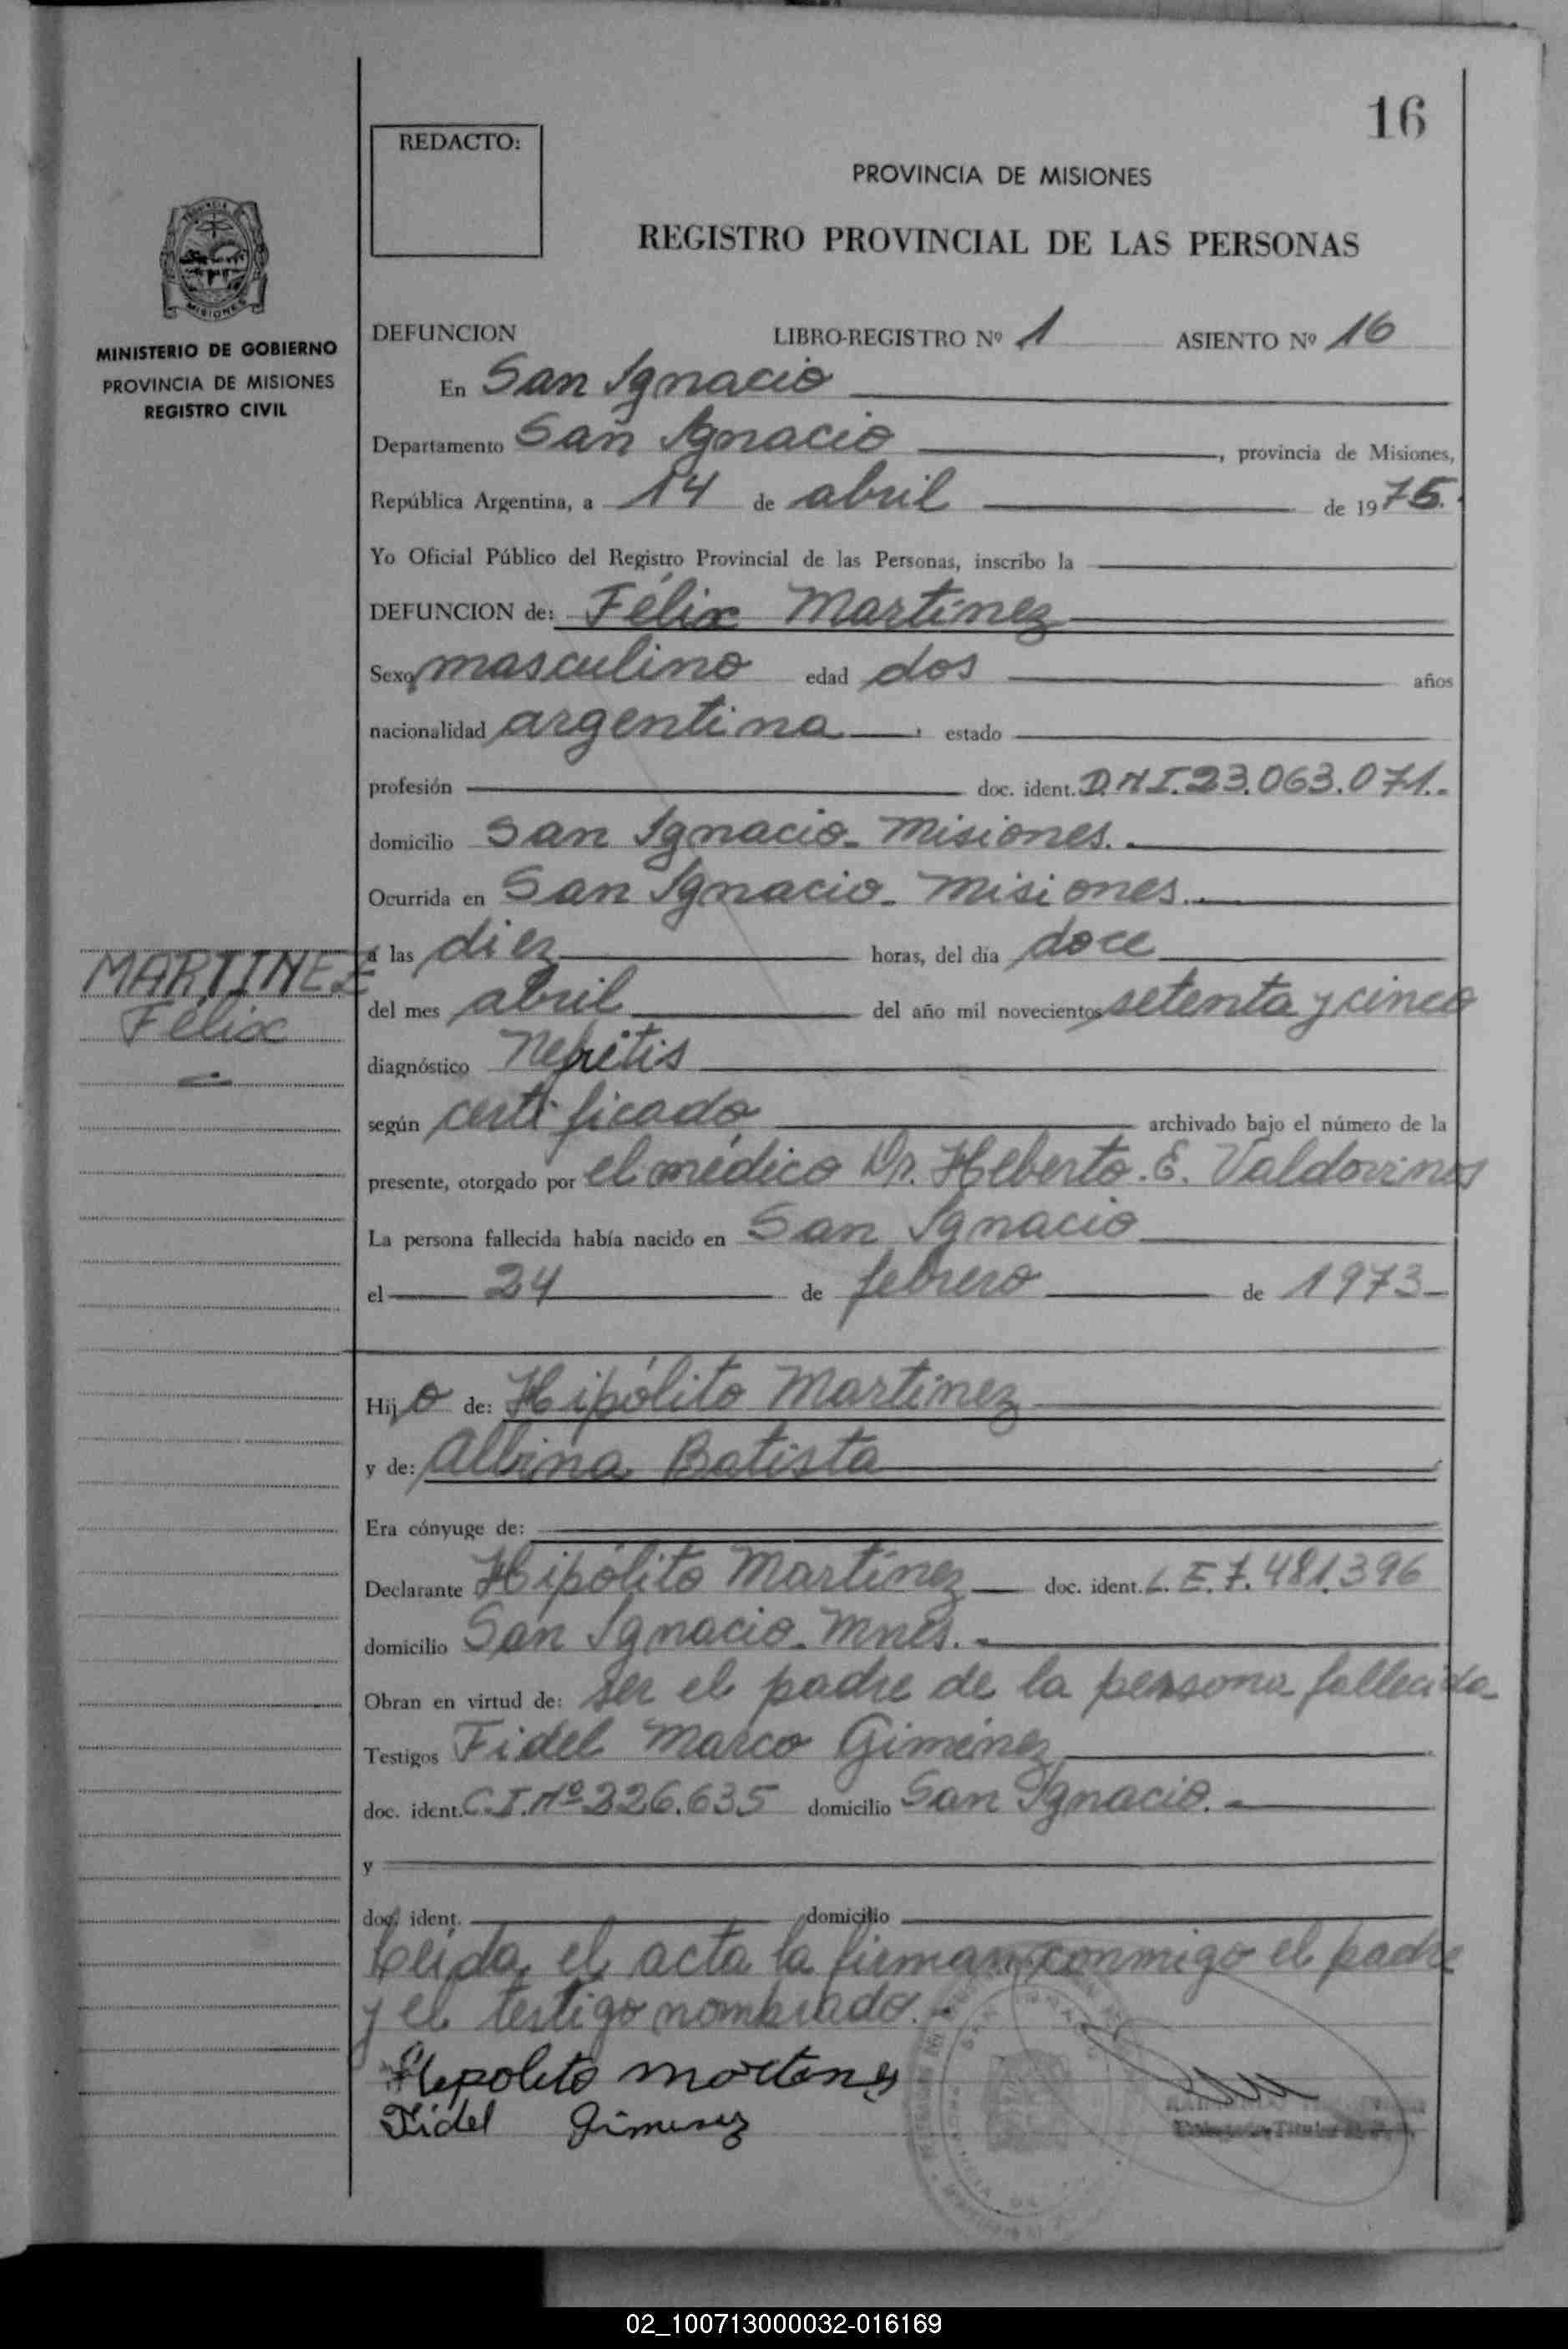 16
REDACTO:
PROVINCIA DE MISIONES
REGISTRO PROVINCIAL DE LAS PERSONAS
MINISTERIO DE GOBIERNO
PROVINCIA DE MISIONES
REGISTRO CIVIL
DEFUNCION LIBRO-REGISTRO Nº 1 ASIENTO Nº 16
En San Ignacio
Departamento San Ignacio, provincia de Misiones,
República Argentina, a 14 de abril de 1975.
Yo Oficial Público del Registro Provincial de las Personas, inscribo la
DEFUNCION de: Félix Martínez
Sexo masculino edad dos años
nacionalidad argentina, estado
profesión doc. ident. D.N.I. 23.063.071.-
domicilio San Ignacio - Misiones.
Ocurrida en San Ignacio - Misiones.
a las diez horas, del día doce
MARTINEZ
Félix
del mes abril del año mil novecientos setenta y cinco
diagnóstico Nefritis
según certificado archivado bajo el número de la
presente, otorgado por el médico Dr. Helberto. E. Valdovinos
La persona fallecida había nacido en San Ignacio
el 24 de febrero de 1973
Hijo de: Hipólito Martínez
y de: Albina Batista
Era cónyuge de:
Declarante Hipólito Martínez doc. ident. L.E. 7.481.396
domicilio San Ignacio - Mnes.
Obran en virtud de: Ser el padre de la persona fallecida
Testigos Fidel Marco Giménez
doc. ident. C.I. Nº 226.635 domicilio San Ignacio.
y
doc. ident. domicilio
Leída el acta la firman conmigo el padre
y el testigo nombrado.
Hepolito Martenes
Fidel Gimenez
02_100713000032-016169